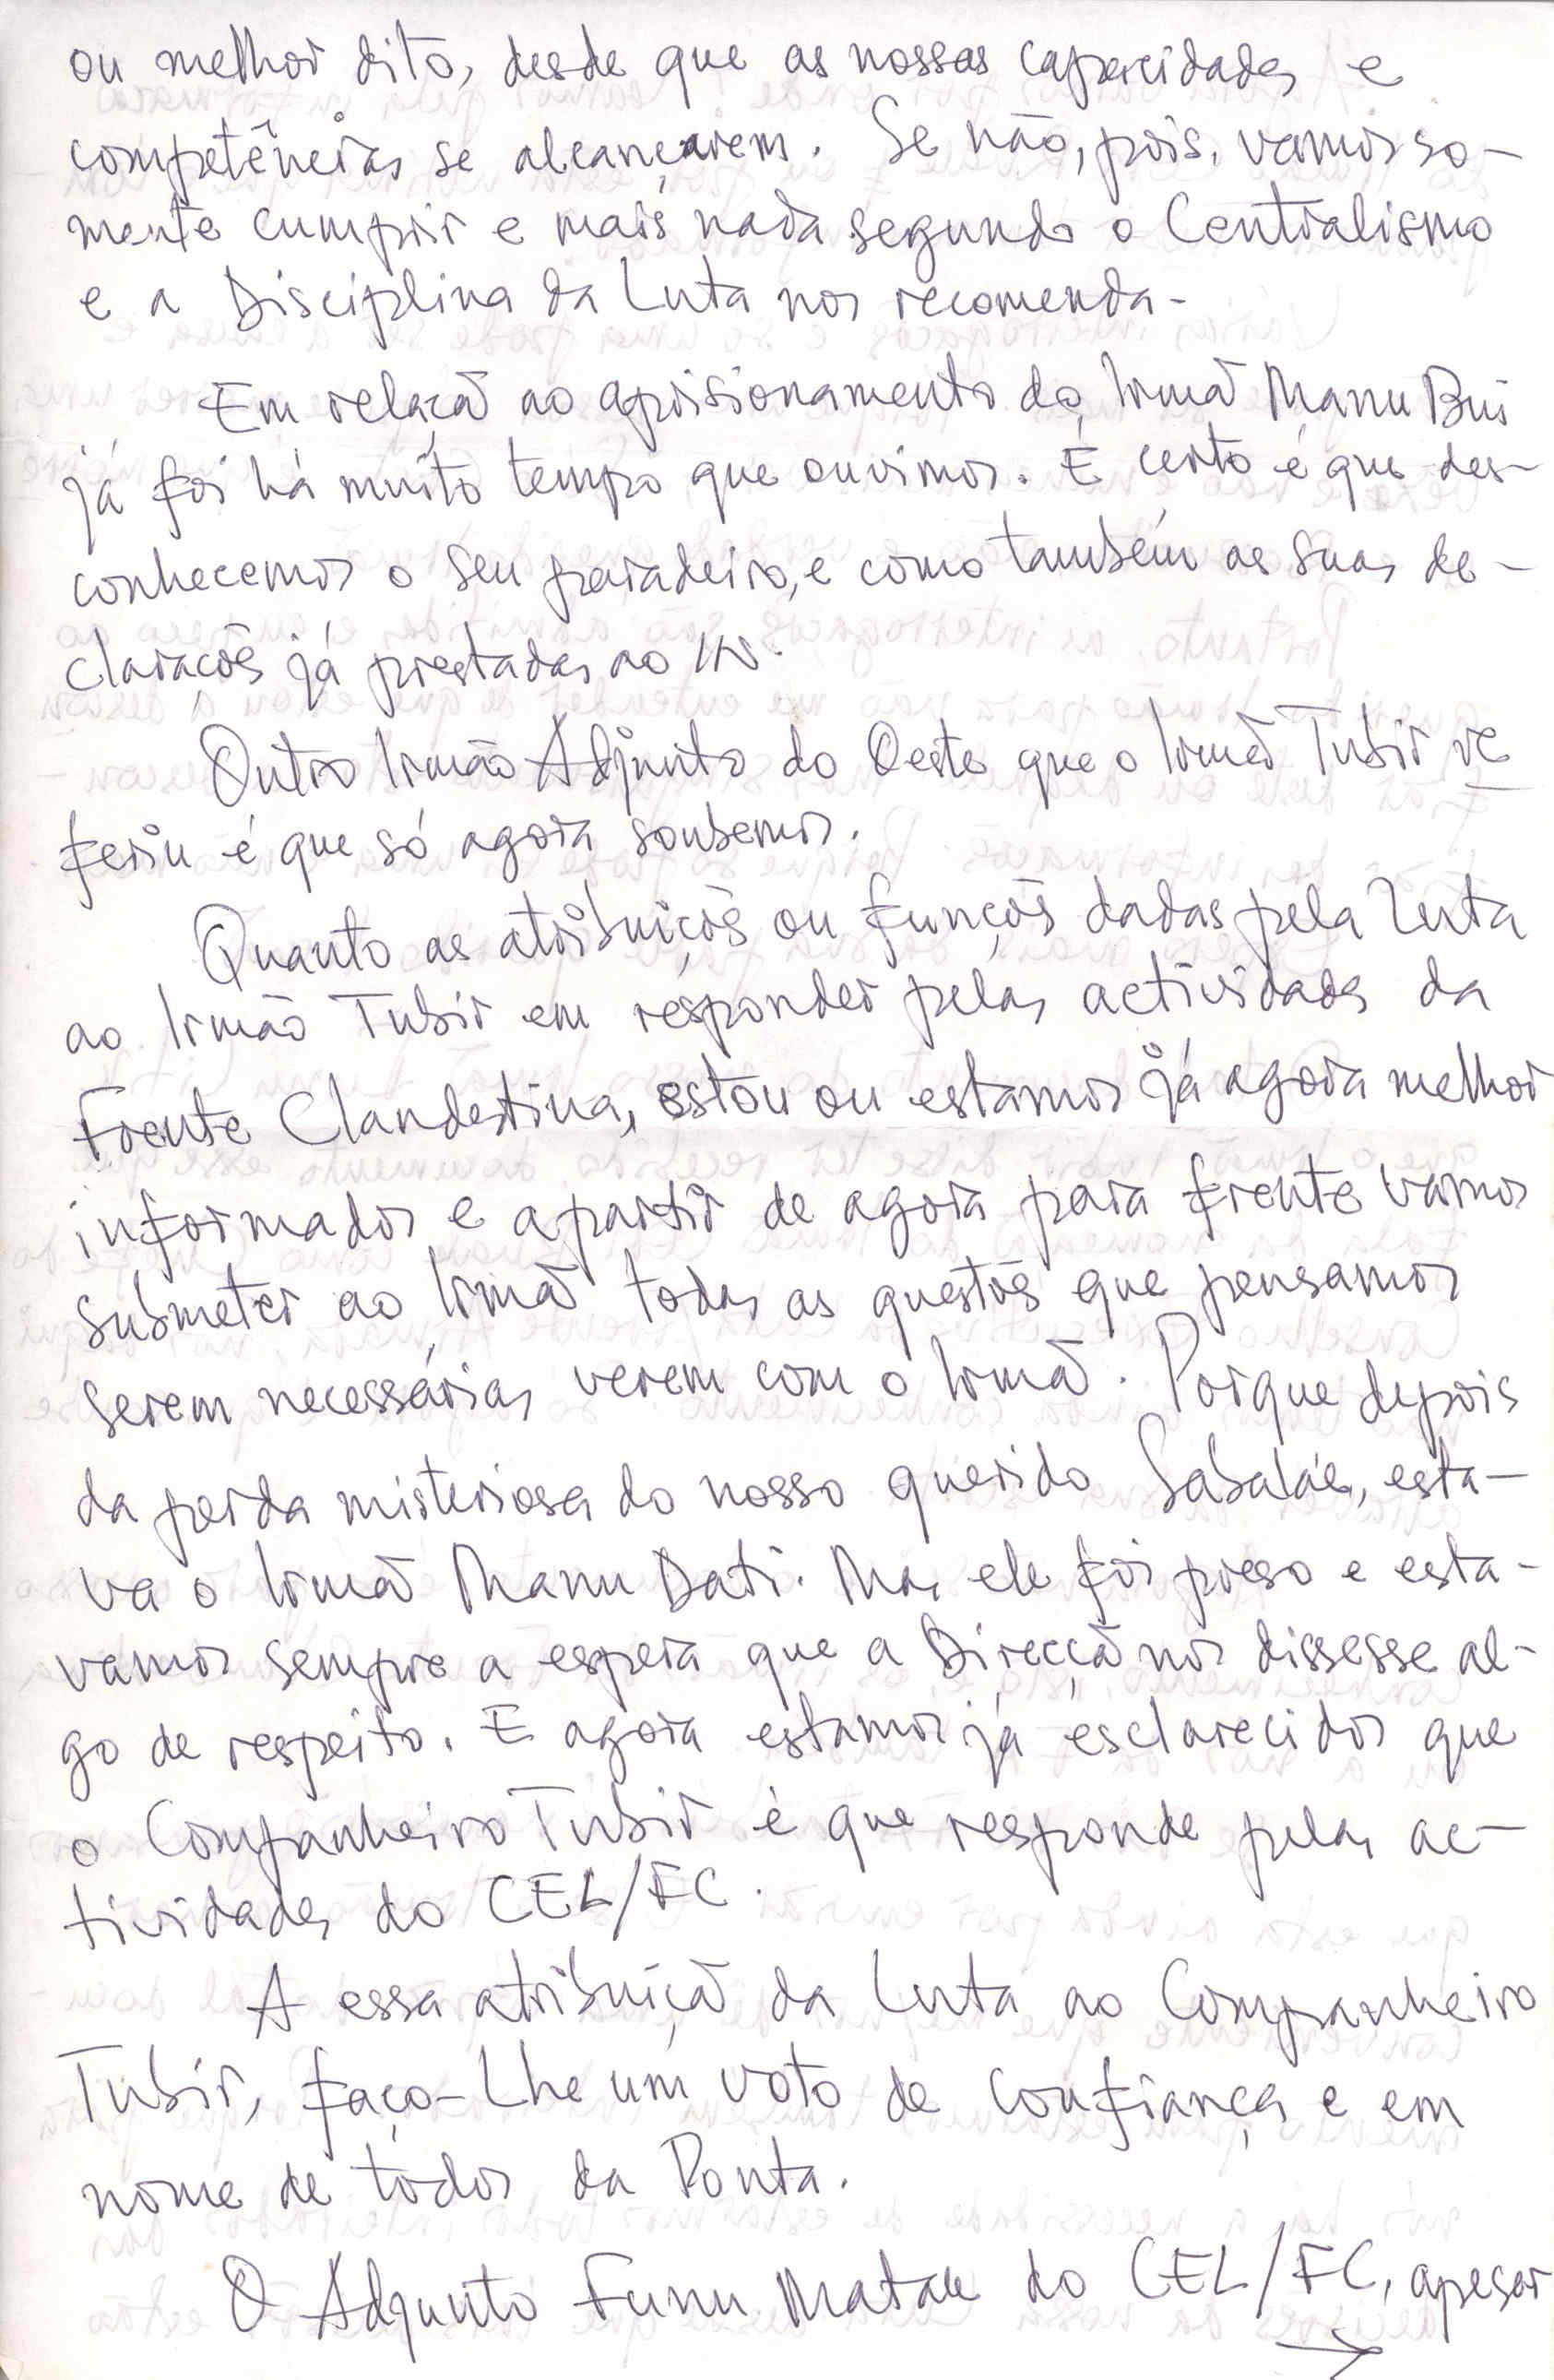 ou melhor dito, desde que as nossas capacidades e
competências se alcançarem. Se não, pois, vamos so-
mente cumprir e mais nada segundo o Centralismo
e a Disciplina da Luta nos recomenda.
Em relaçã ao aprisionamento do Irmã Manu Bui
já foi há muito tempo que ouvimos. E certo é que des-
conhecemos o seu paradeiro, e como também as suas de-
clarações já prestadas ao IN.
Outro Irmão Adjunto do Oeste que o Irmã Tubir re
feriu é que só agora soubemos.
Quanto as atribuições ou funções dadas pela Luta
ao Irmão Tubir em responder pelas actividades da
Frente Clandestina, estou ou estamos já agora melhor
informados e apartir de agora para frente vamos
submeter ao Irmã todas as questões que pensamos
serem necessárias verem com o Irmã. Porque depois
da perda misteriosa do nosso querido Sabalae, esta-
va o Irmã Manu Dati. Mas ele foi preso e esta-
vamos sempre a espera que a Direcçã nos dissesse al-
go de respeito. E agora estamos já esclarecidos que
o Companheiro Tubir é que responde pelas ac-
tividades do CEL/FC.
A essa atribuiçã da Luta ao Companheiro
Tubir, faço-Lhe um voto de confiança e em
nome de todos da Ponta.
O Adjunto Funu Matan do CEL/FC, apesar